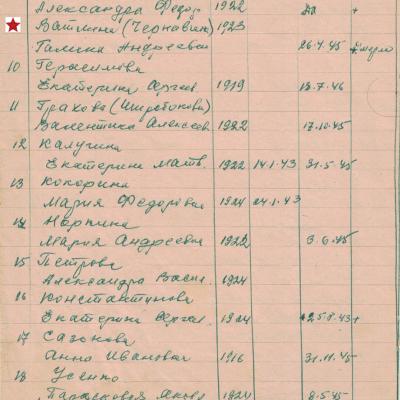 Александра Федор 1922 да +
Ватлина (Чернавина) 1923
Галина Андреевна 26.4.45
10 Герасимова
Екатерина Сергеев 1919 13.7.46
11 Грахова (Широбокова)
Валентина Алексеев 1922 17.10.45
12 Калугина
Екатерина Матв. 1922 14.1.43 31.5.45
13 Кокорина
Мария Федоровна 1924 24.1.43
14 Нарпина
Мария Андреевна 1922 3.6.45
15 Петрова
Александра Васил. 1924
16 Константинова
Екатерина Сергеев. 1924 25.8.43 +
17 Сазонова
Анна Ивановна 1916 31.11.45
18 Усенко
Парасковья Яковл 1924 8.5.45